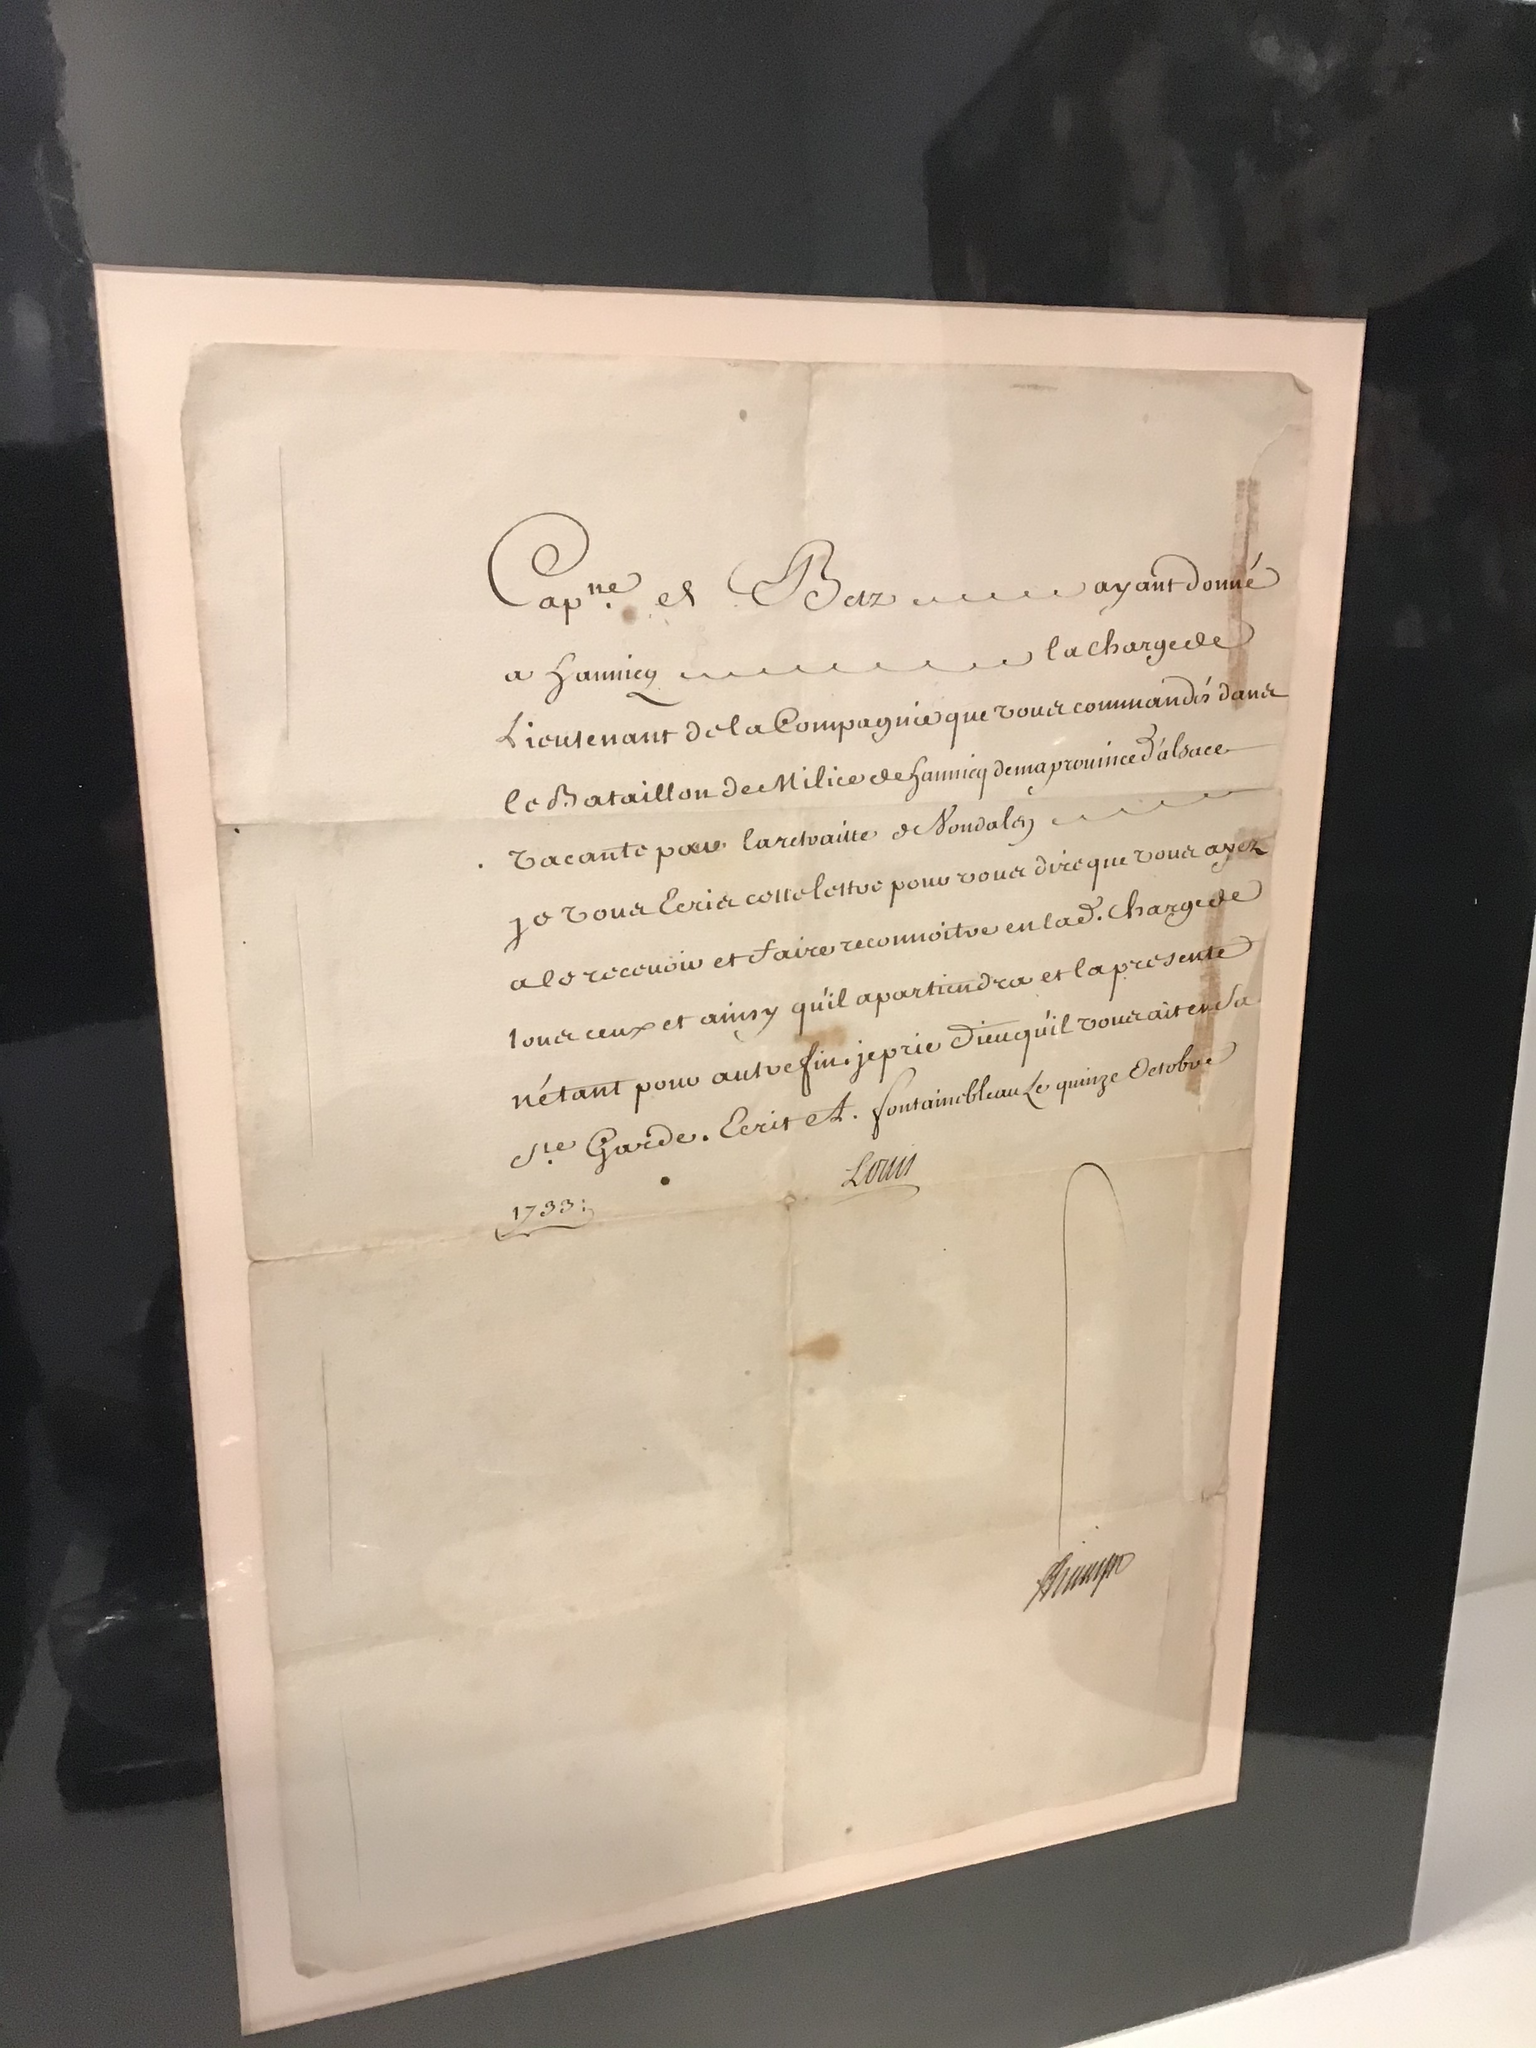 Cap.ne Betz ayant donné
a hannicq la charge de
Lieutenant de la Compagnie que vous commandés dans
le Bataillon de Milice de hannicq de ma province d'alsace
vacante par la retraitte de
je vous Ecris cette lettre pour vous dire que vous ayez
a le recevoir et faire reconnoitre en lad. charge de
tous ceux et ainsy qu'il apartiendra et la presente
n'étant pour autre fin. je prie Dieu qu'il vous ait en sa
S.te Garde. Ecrit A. fontainebleau Le quinze Octobre
1733: Louis